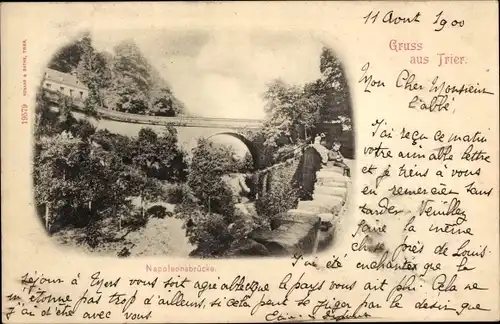 11 Aout 1900
Gruss
aus Trier.
Mon Cher Monsieur
l'abbé,
J'ai reçu ce matin
votre aimable lettre
et je tiens à vous
en remercier sans
tarder. Veuillez
faire la même
chose près de Louis
J'ai été enchanté que la
séjour à vous soit agréable que le pays vous ait plu. Cela ne
m'étonne pas trop d'ailleurs, si cela peut se juger par le desir que
j'ai d'être avec vous
Napoleonsbrücke.
19579